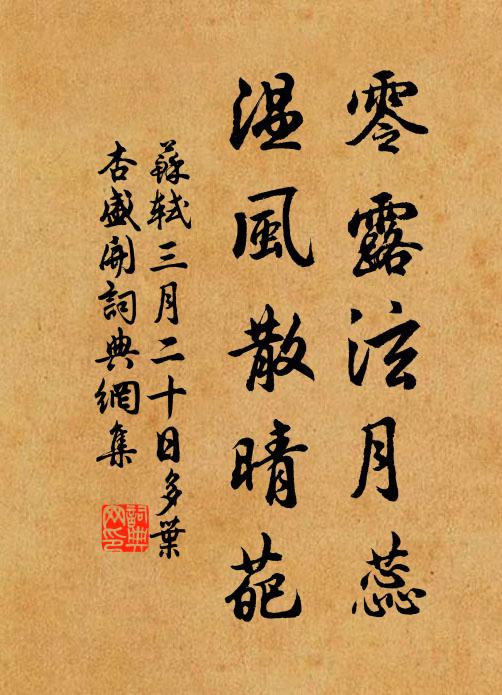 零露泫月蕊
温風散晴葩
蘇軾三月二十日多葉
杏盛開詞典網集
詞典
网印